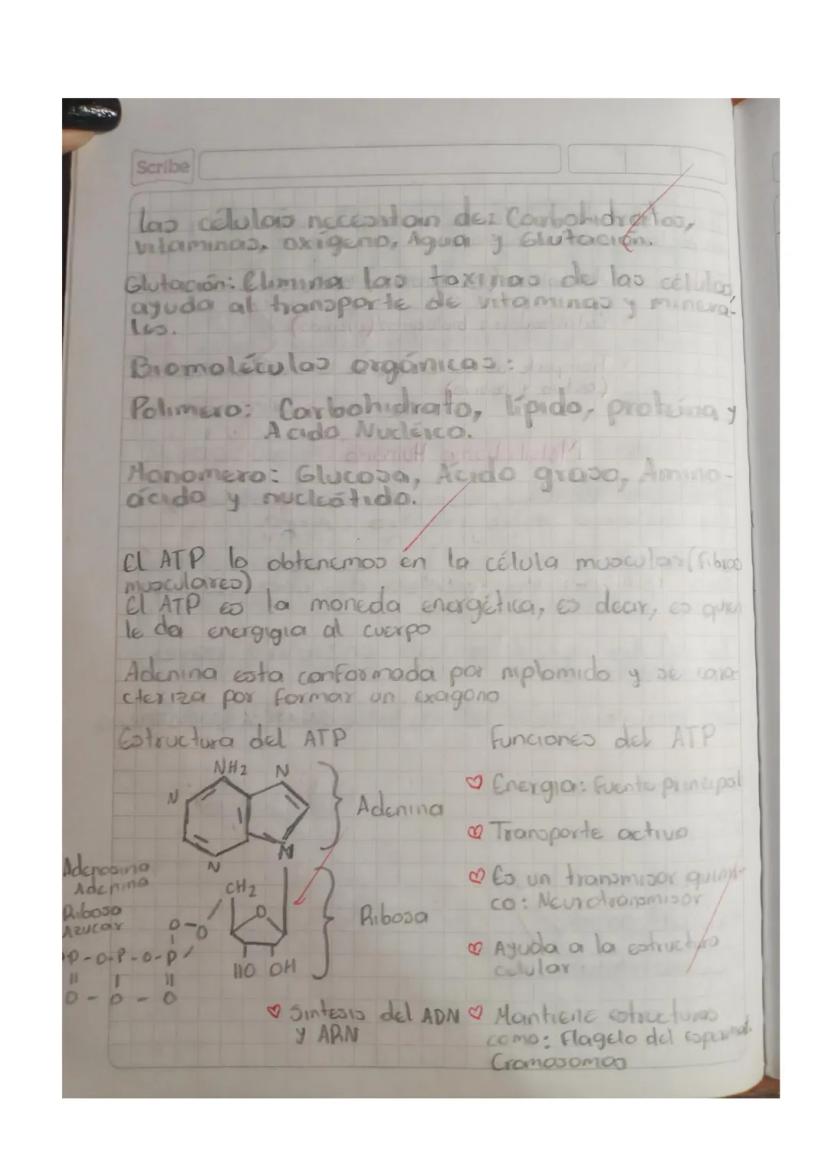 Scribe
las células necesitan de: Carbohidratos,
vitaminas, oxigeno, Agua y Glutación.
Glutación: Elimina las toxinas de las células,
ayuda al transporte de vitaminas y minera-
les.
Biomoléculas orgánicas:
Polimero: Carbohidrato, lípido, proteína y
Acido Nucléico.
Monomero: Glucosa, Ácido graso, Amino-
ácido y nucleótido.
El ATP lo obtenemos en la célula muscular (fibras
musculares)
El ATP es la moneda energética, es decir, es que
le da energigia al cuerpo
Adenina esta conformada por y se cara-
cteriza por formar un exagono
Estructura del ATP
NH2 N
N
N N
Adenina
Adenosina
Adenina
Ribosa
Azucar
CH2
O
O-O
P-O-P-O-P
O - O - O
HO OH
Ribosa
Funciones del ATP
Energia: Fuente principal
Transporte activo
Es un transmisor quími-
co: Neurotransmisor
Ayuda a la estructura
celular
Sintesis del ADN
y ARN
Mantiene estructuras
como: Flagelo del
Cromosomas